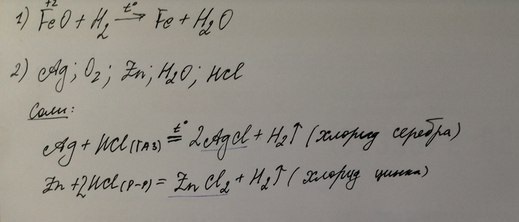 +2
1) FeO + H₂ →t° Fe + H₂O
2) Ag; O₂; Zn; H₂O; HCl
Соли:
Ag + HCl (ГАЗ) =t° 2AgCl + H₂↑ (хлорид серебра)
Zn + 2HCl (р-р) = ZnCl₂ + H₂↑ (хлорид цинка)